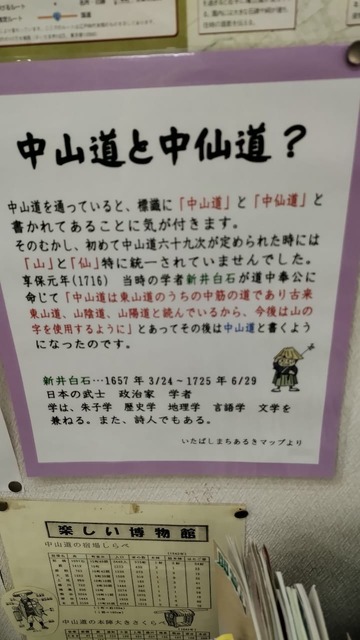 中山道と中仙道？
中山道を通っていると、標識に「中山道」と「中仙道」と
書かれてあることに気が付きます。
そのむかし、初めて中山道六十九次が定められた時には
「山」と「仙」特に統一されていませんでした。
享保元年(1716) 当時の学者新井白石が道中奉公に
命じて「中山道は東山道のうちの中筋の道であり古来
東山道、山陰道、山陽道と読んでいるから、今後は山の
字を使用するように」とあってその後は中山道と書くよう
になったのです。
新井白石…1657年 3/24～1725年 6/29
日本の武士 政治家 学者
学は、朱子学 歴史学 地理学 言語学 文学を
兼ねる。また、詩人でもある。
いたばしまちあるきマップより
楽しい博物館
中山道の宿場しらべ
中山道の本陣大きさくらべ